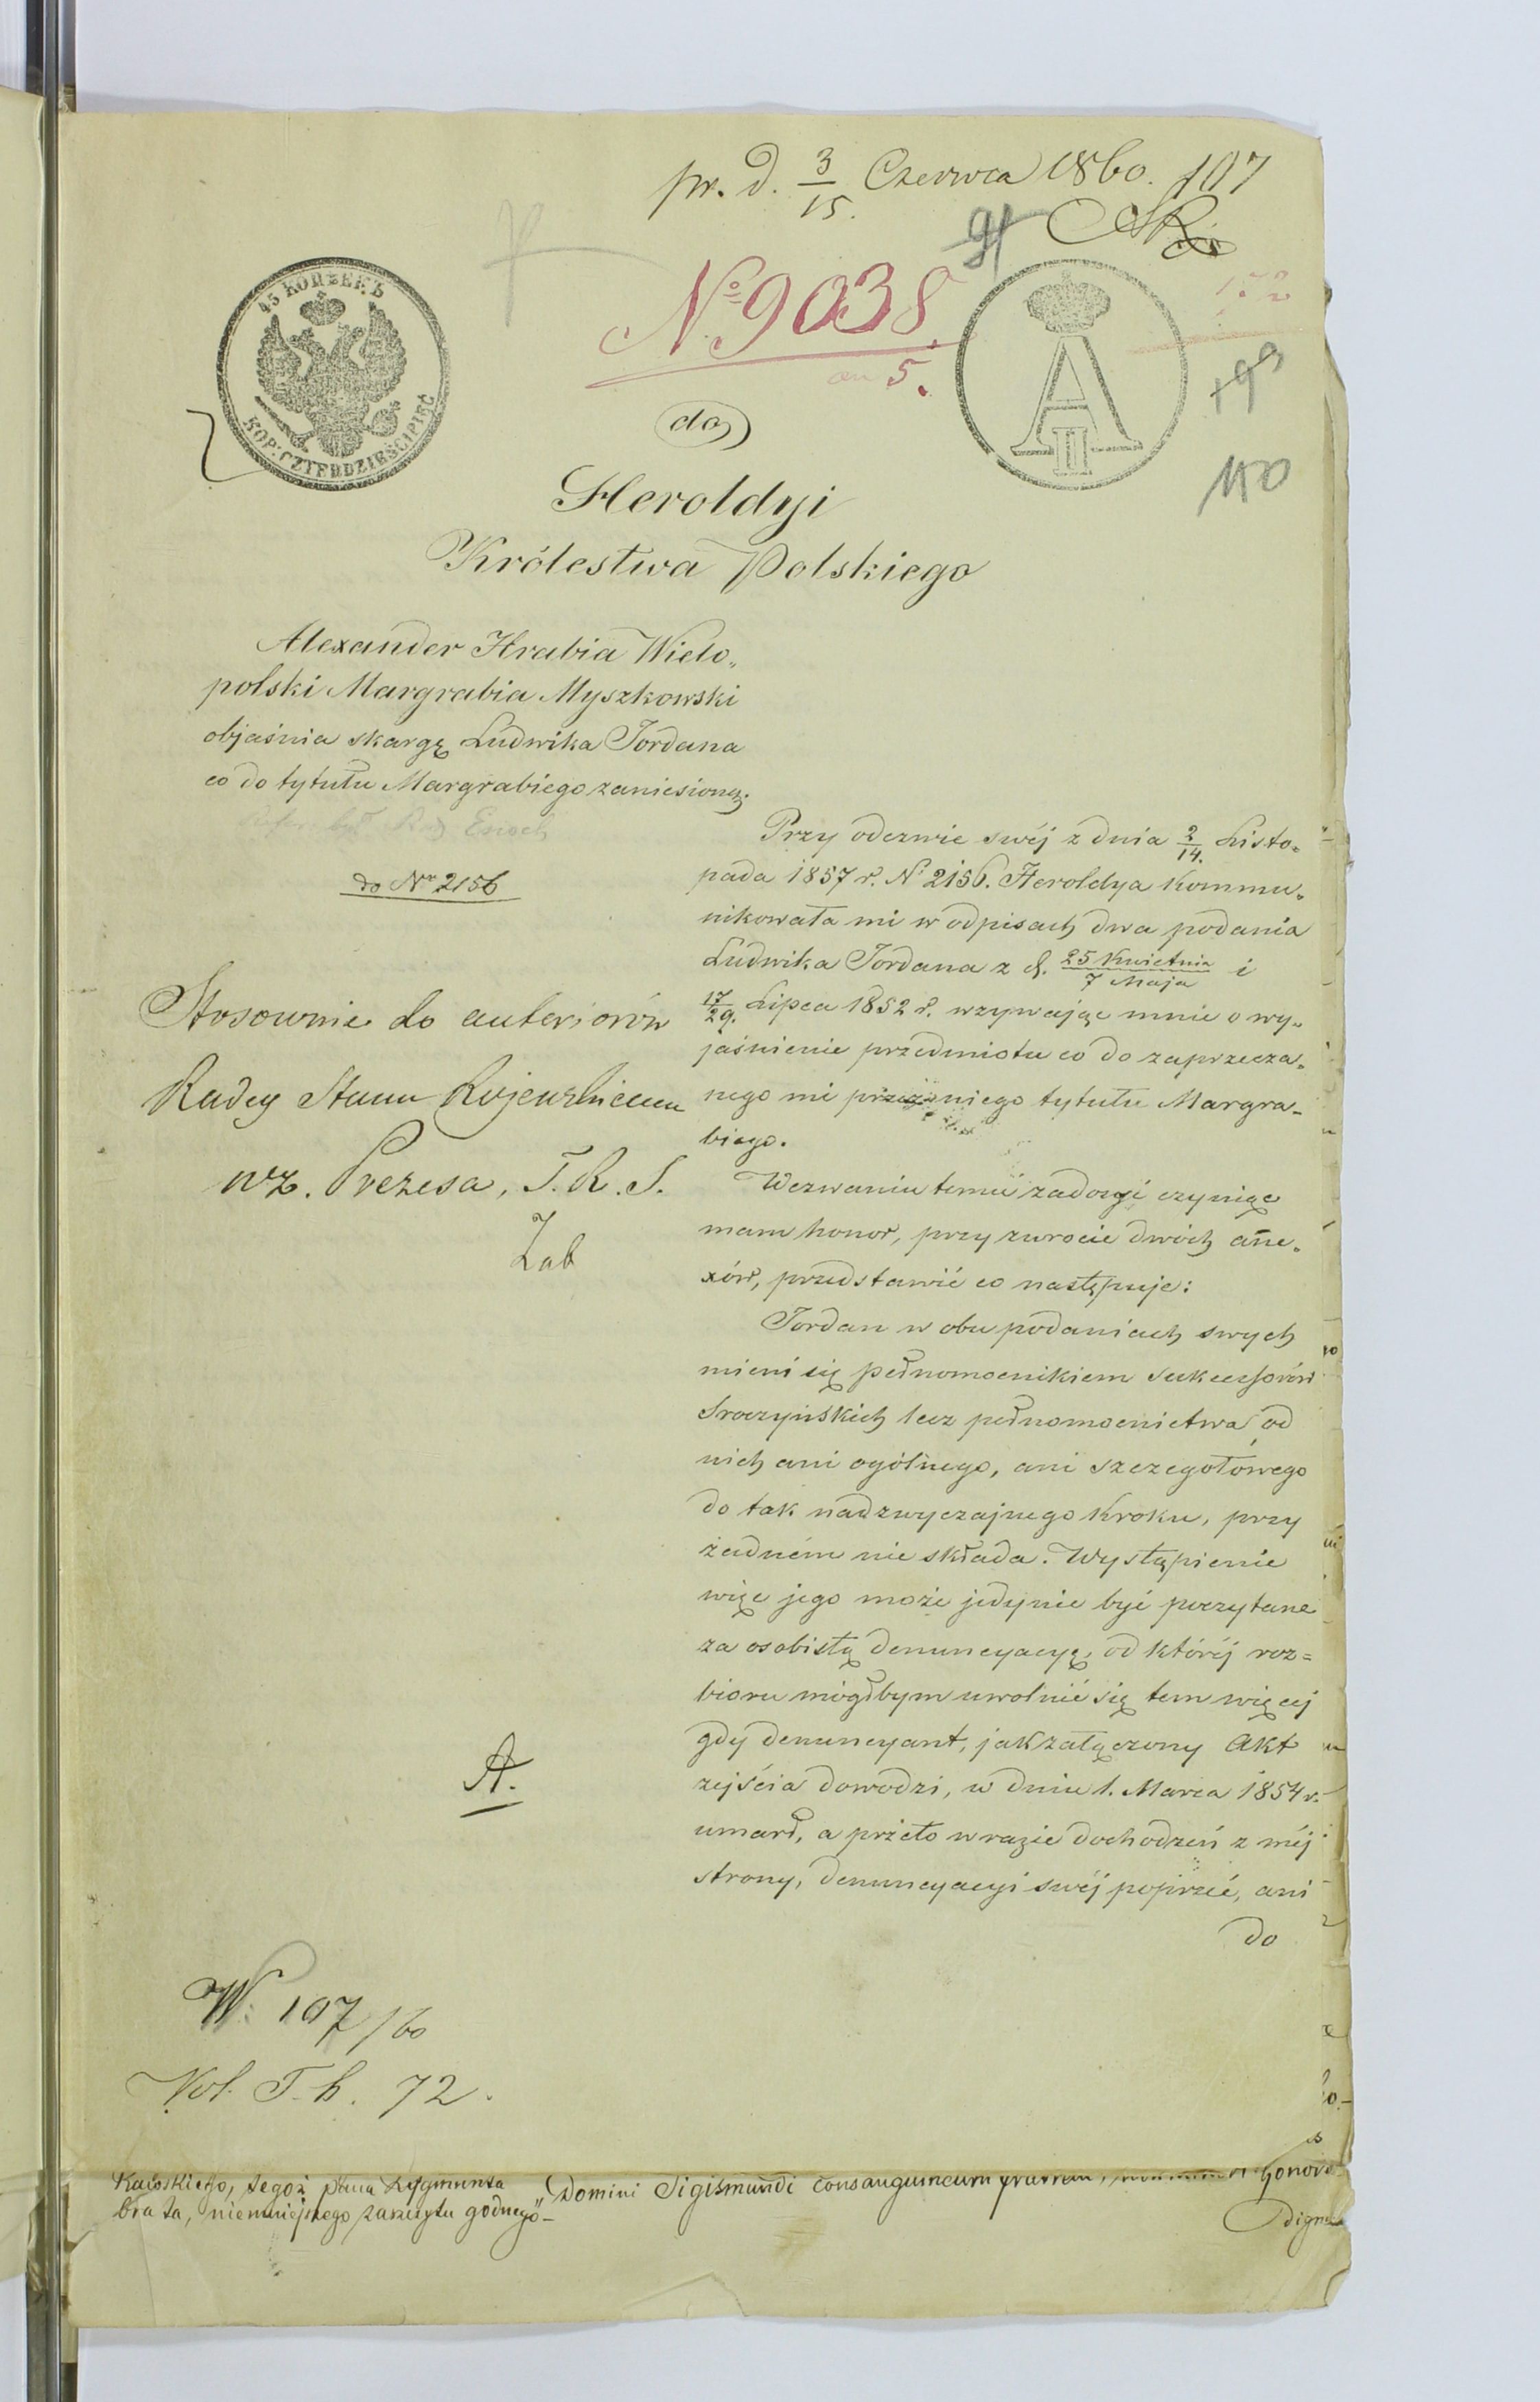 pr. d. 3/15. Czerwca 1860. 107
No 9038
5.
45 КОПѢЕКЪ
KOP: CZTERDZIEŚCI PIĘĆ
A II
199
150
do
Heroldyi
Królestwa Polskiego
Alexander Hrabia Wielo„
polski Margrabia Myszkowski
objaśnia skargę Ludwika Jordana
co do tytułu Margrabiego zaniesioną.
Enoch
do Nr 2156
Stosownie do anteriorów
Radcy Stanu
wz. Prezesa, T. R. S.
Żab
Przy odezwie swéj z dnia 2/14. Listo„
pada 1857 r. N. 2156. Heroldya kommu„
nikowała mi w odpisach dwa podania
Ludwika Jordana z d. 25 Kwietnia/7 Maja i
17/29. Lipca 1852 r. wzywając mnie o wy„
jaśnienie przedmiotu co do zaprzecza„
nego mi przez niego tytułu Margra-
biego.
Wezwaniu temu zadosyć czyniąc
mam honor, przy zwrocie dwóch anne„
xów, przedstawić co następuje:
Jordan w obu podaniach swych
mieni się pełnomocnikiem Sukcessorów
Sroczyńskich lecz pełnomocnictwa od
nich ani ogólnego, ani szczegółowego
do tak nadzwyczajnego kroku, przy
żadném nie składa. Wystąpienie
więc jego może jedynie być poczytane
za osobistą denuncyacyę, od któréj roz=
bioru mógłbym uwolnić się tem więcej
gdy denuncyant, jak załączony Akt
zejścia dowodzi, w dniu 1. Marca 1854 r.
umarł, a przeto w razie dochodzeń z méj
strony, denuncyacyi swéj poprzeć, ani
do
A.
W. 107/60
Vol. T. h. 72.
tegoż Pana Zygmunta
brata, niemniejszego zaszczytu godnego"-
Domini Sigismundi consanguineum fratrem, honore
Dign